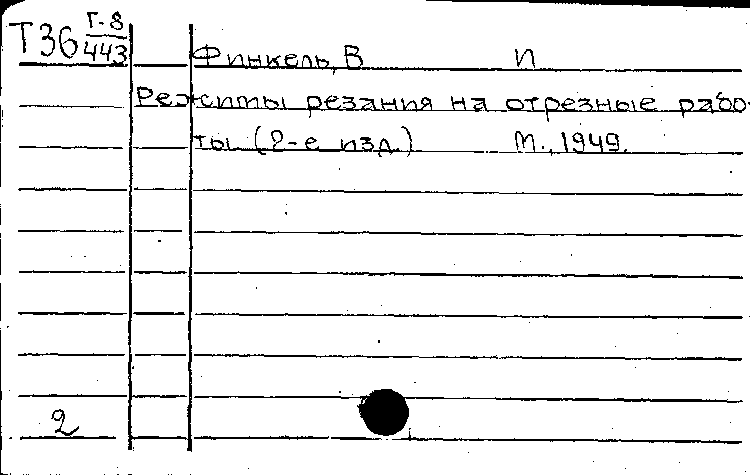 Т36 Г-8/443
Финкель, В И
Режимы резания на отрезные рабо-
ты (2-е изд.) М., 1949.
2